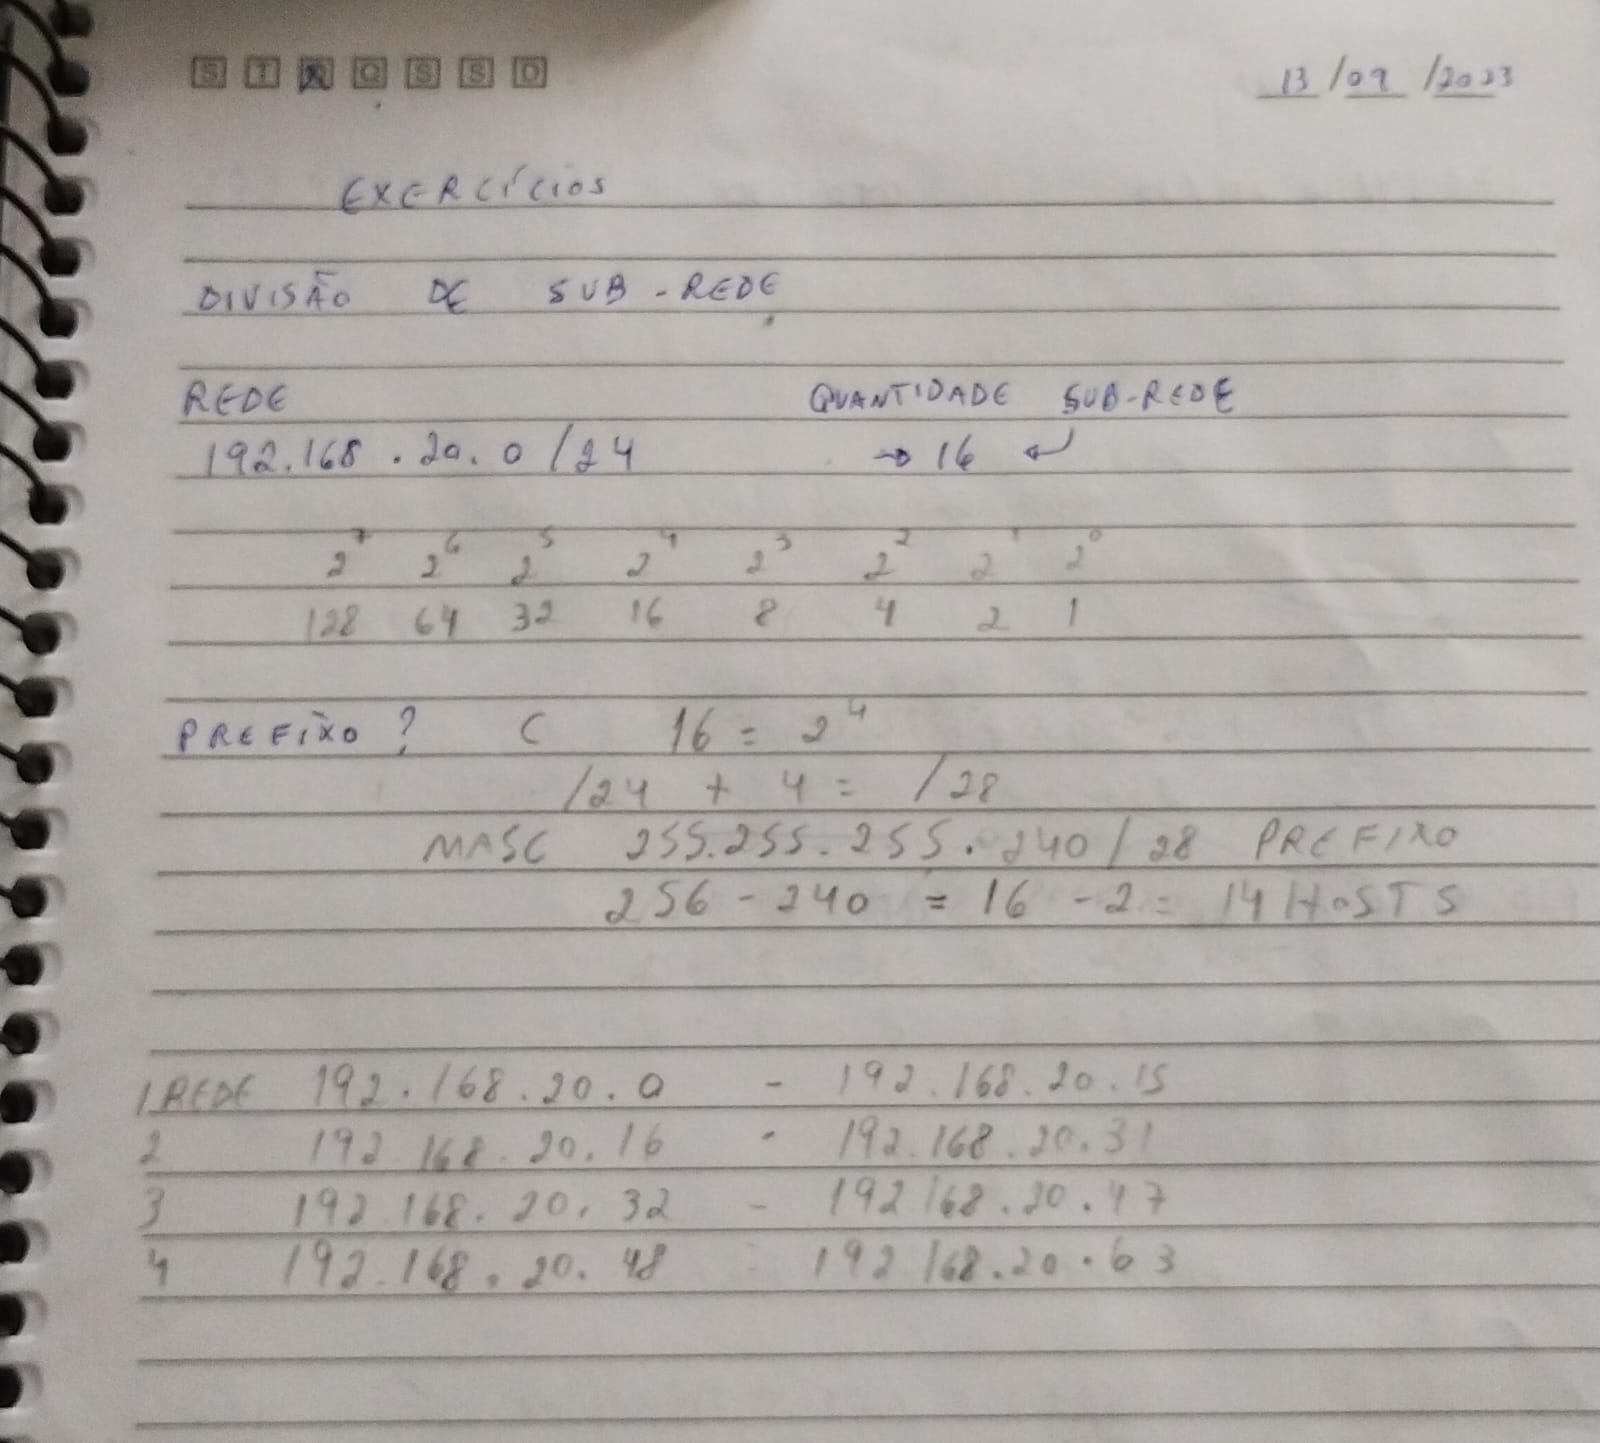 S T Q Q S S D 13/09/2023
EXERCÍCIOS
DIVISÃO DE SUB-REDE
REDE QUANTIDADE SUB-REDE
192.168.20.0/24 → 16 ↵
2⁷ 2⁶ 2⁵ 2⁴ 2³ 2² 2¹ 2⁰
128 64 32 16 8 4 2 1
PREFIXO? C 16 = 2⁴
/24 + 4 = /28
MASC 255.255.255.240/28 PREFIXO
256 - 240 = 16 - 2 = 14 HOSTS
1 REDE 192.168.20.0 - 192.168.20.15
2 192.168.20.16 - 192.168.20.31
3 192.168.20.32 - 192.168.20.47
4 192.168.20.48 - 192.168.20.63